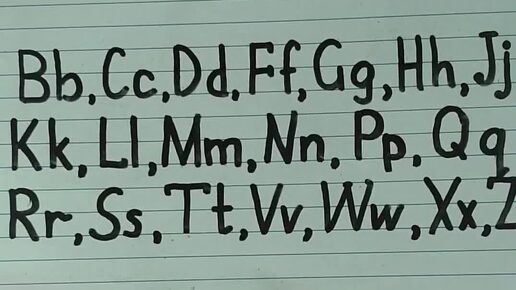 Bb, Cc, Dd, Ff, Gg, Hh, Jj
Kk, Ll, Mm, Nn, Pp, Qq
Rr, Ss, Tt, Vv, Ww, Xx, Z